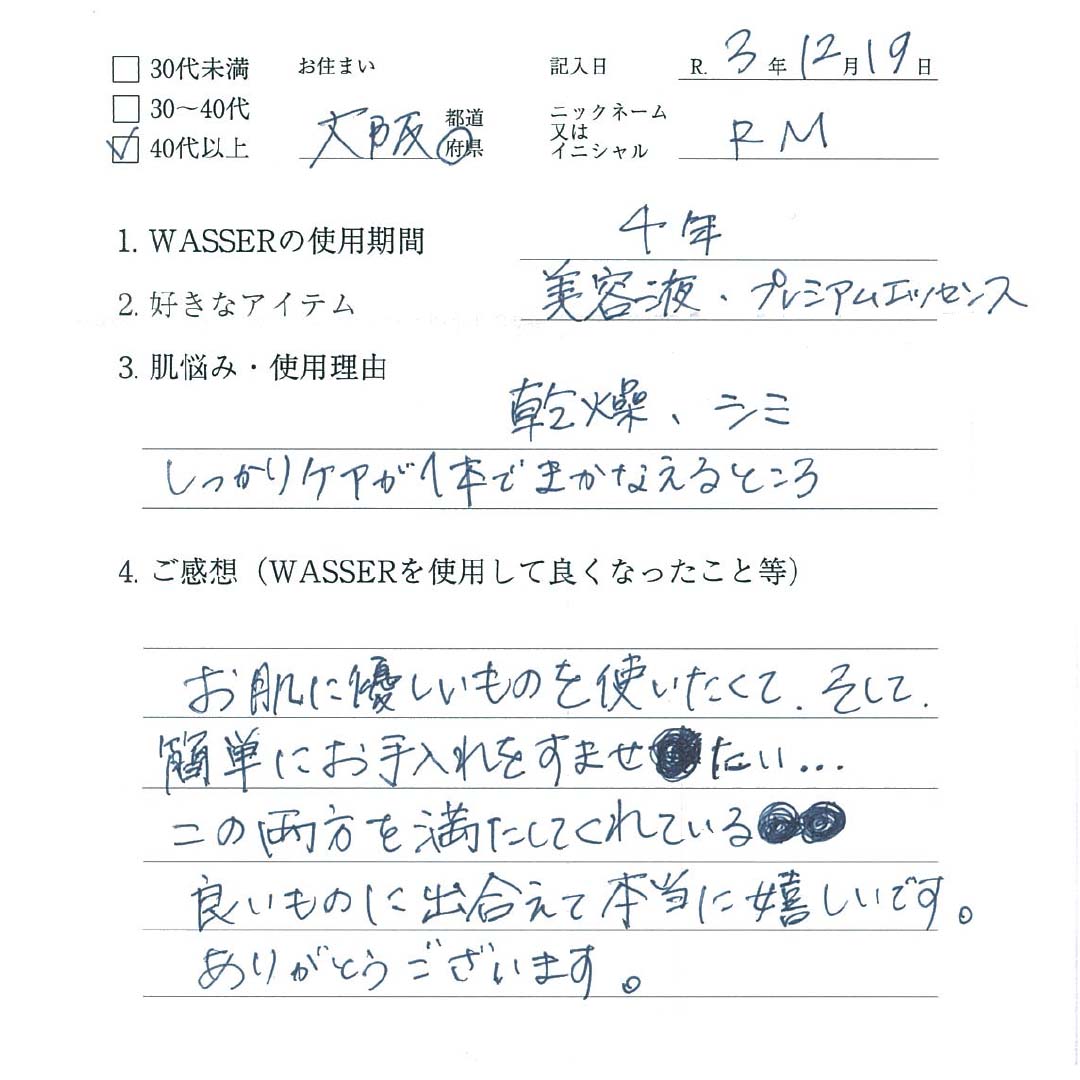 30代未満 お住まい 記入日 R. 3年12月19日
30〜40代 大阪 都道府県 ニックネーム又はイニシャル RM
40代以上
1. WASSERの使用期間 4年
2. 好きなアイテム 美容液・プレミアムエッセンス
3. 肌悩み・使用理由
乾燥、シミ
しっかりケアが1本でまかなえるところ
4. ご感想（WASSERを使用して良くなったこと等）
お肌に優しいものを使いたくて、そして、
簡単にお手入れをすませたい...
この両方を満たしてくれている
良いものに出合えて本当に嬉しいです。
ありがとうございます。